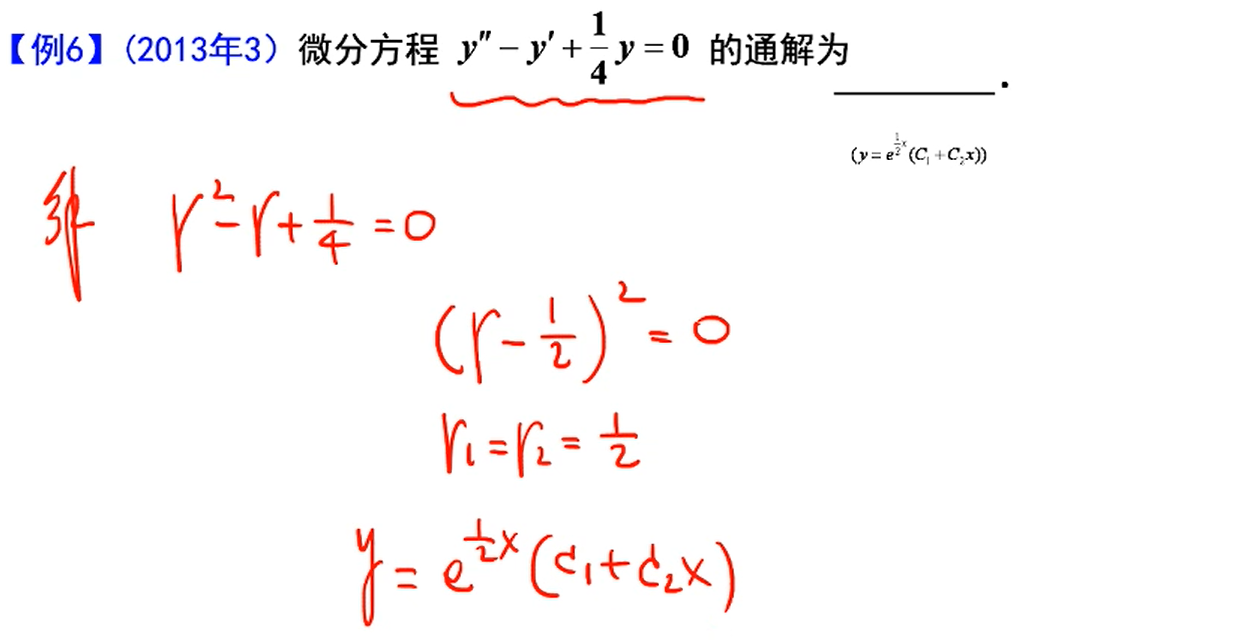 【例6】(2013年3) 微分方程 y″ − y′ + 1/4 y = 0 的通解为 ________ .
(y = e^{1/2 x}(C₁ + C₂x))
解 r² − r + 1/4 = 0
(r − 1/2)² = 0
r₁ = r₂ = 1/2
y = e^{1/2 x}(C₁ + C₂x)